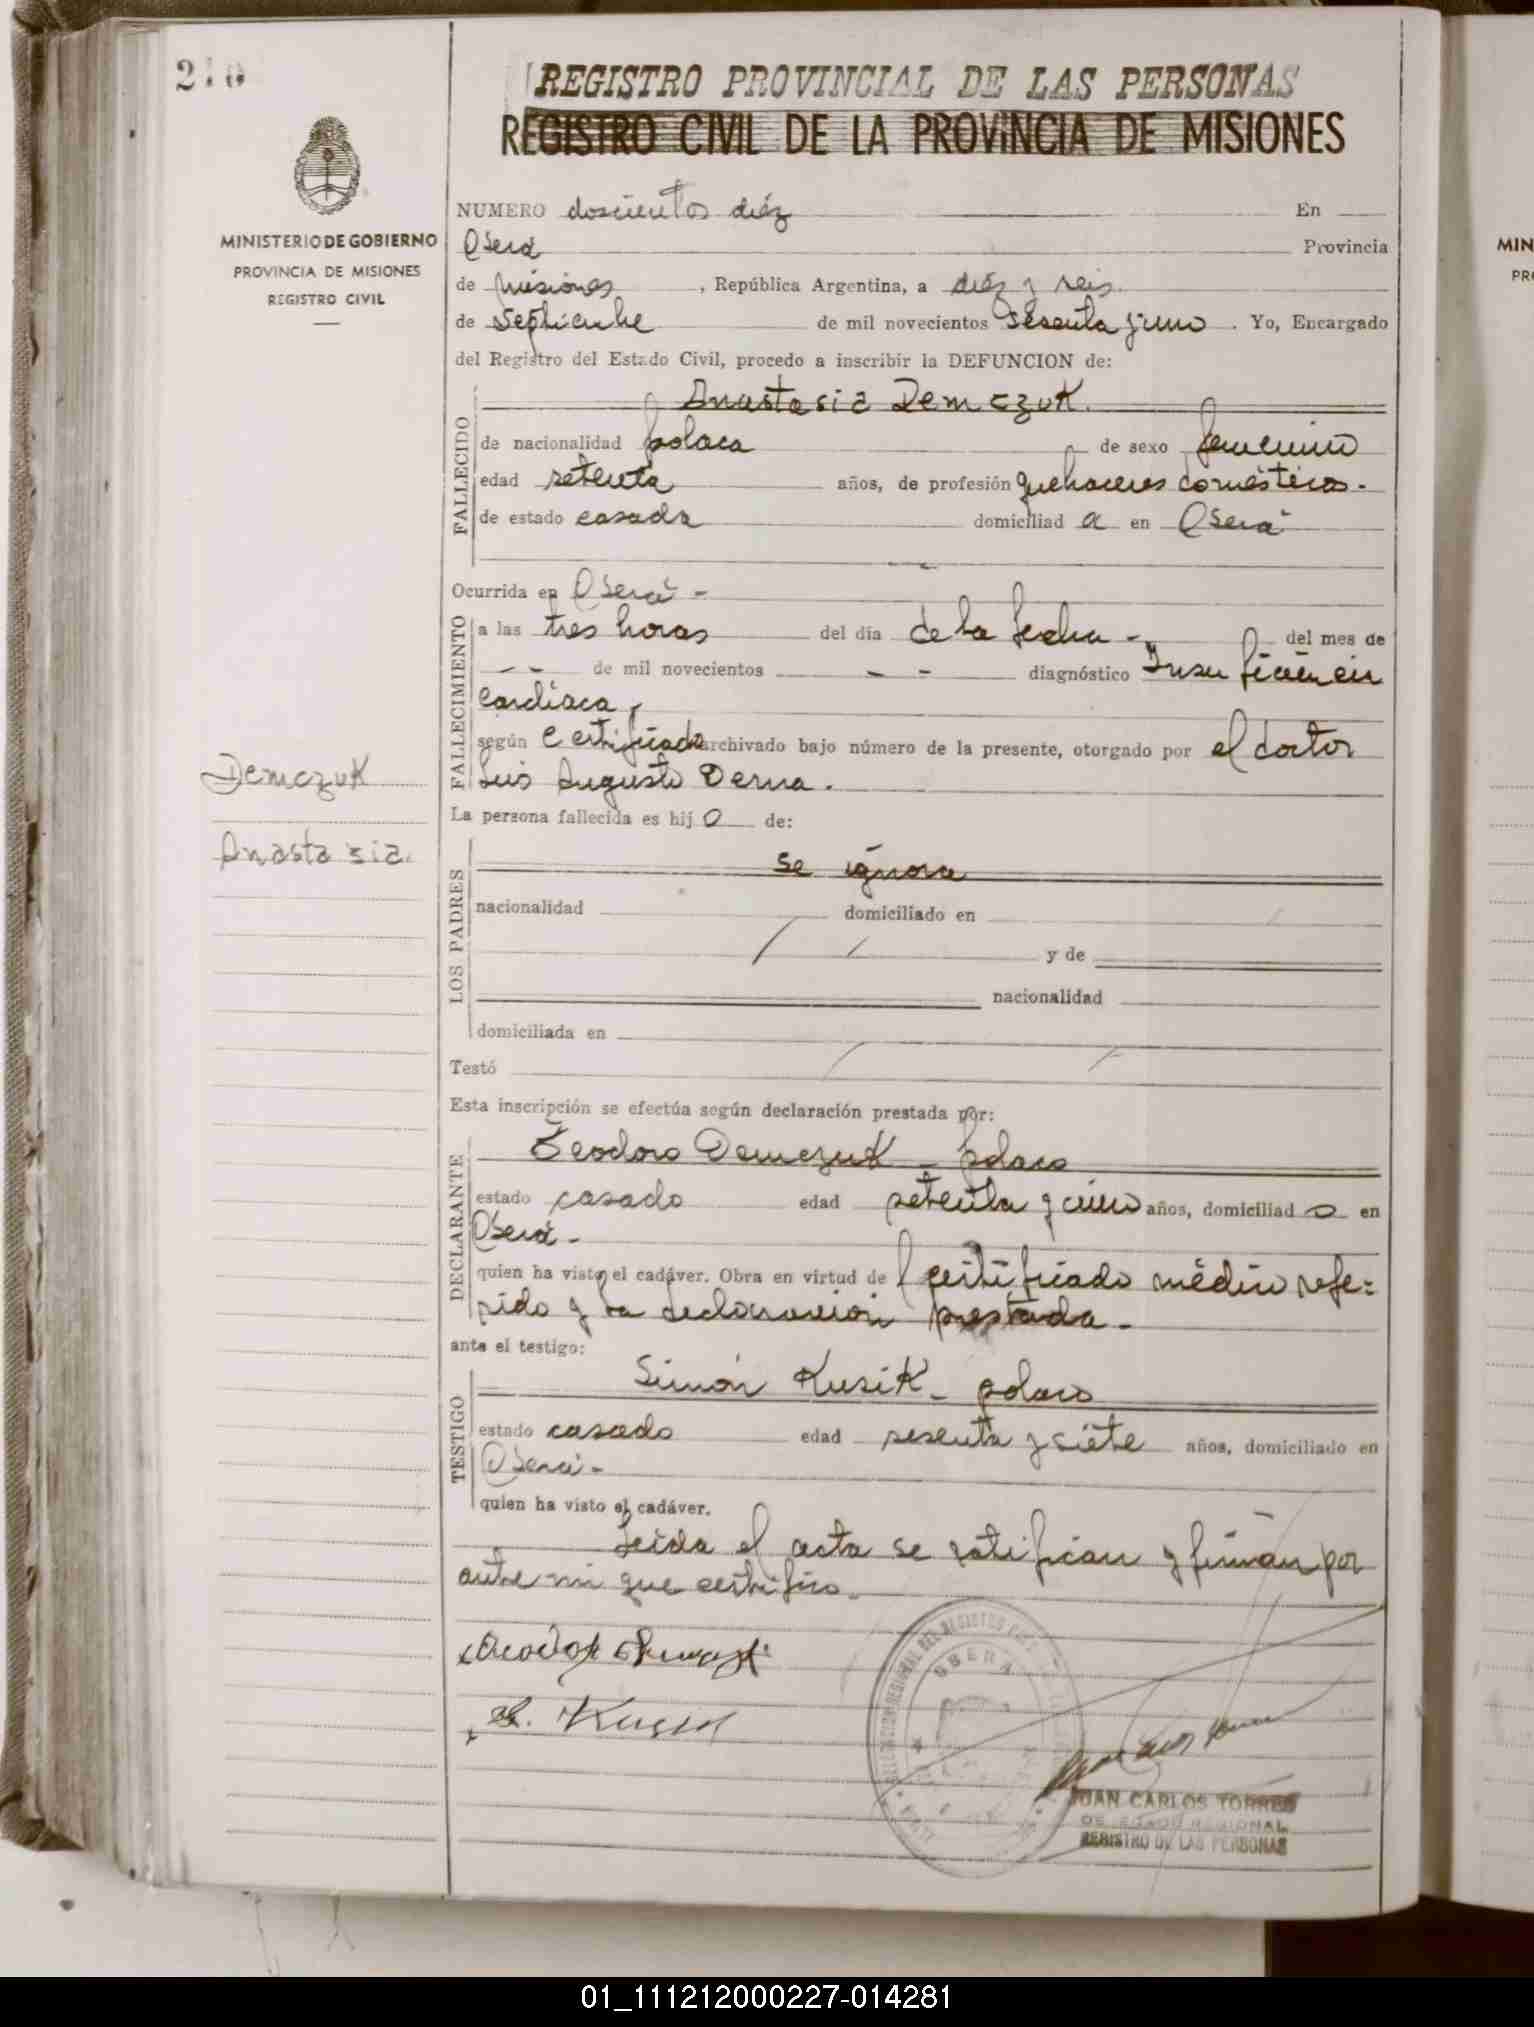 210
REGISTRO PROVINCIAL DE LAS PERSONAS
REGISTRO CIVIL DE LA PROVINCIA DE MISIONES
MINISTERIO DE GOBIERNO
PROVINCIA DE MISIONES
REGISTRO CIVIL
NUMERO doscientos diéz En
Oberá Provincia
de Misiones, República Argentina, a diéz y seis
de Septiembre de mil novecientos sesenta y uno. Yo, Encargado
del Registro del Estado Civil, procedo a inscribir la DEFUNCION de:
FALLECIDO
Anastasia Demczuk.
de nacionalidad polaca de sexo femenino
edad setenta años, de profesión quehaceres domésticos.-
de estado casada domiciliad a en Oberá
Ocurrida en Oberá -
FALLECIMIENTO
a las tres horas del día de la fecha - del mes de
- - de mil novecientos - - diagnóstico Insuficiencia
cardíaca,
según Certificado archivado bajo número de la presente, otorgado por el doctor
Luis Augusto Derna.
Demczuk
Anastasia.
La persona fallecida es hij o de:
LOS PADRES
se ignora
nacionalidad domiciliado en
y de
nacionalidad
domiciliada en
Testó
Esta inscripción se efectúa según declaración prestada por:
DECLARANTE
Teodoro Demczuk - polaco
estado casado edad setenta y cinco años, domiciliad o en
Oberá -
quien ha visto el cadáver. Obra en virtud de l certificado médico refe=
rido y la declaración prestada -
ante el testigo:
TESTIGO
Simón Kusik - polaco
estado casado edad sesenta y siete años, domiciliado en
Oberá -
quien ha visto el cadáver.
Leida el acta se ratifican y firman por
ante mi que certifico.
S. Kusik
OBERA
JUAN CARLOS TORRES
DELEGADO REGIONAL
REGISTRO DE LAS PERSONAS
MIN
PR
01_111212000227-014281